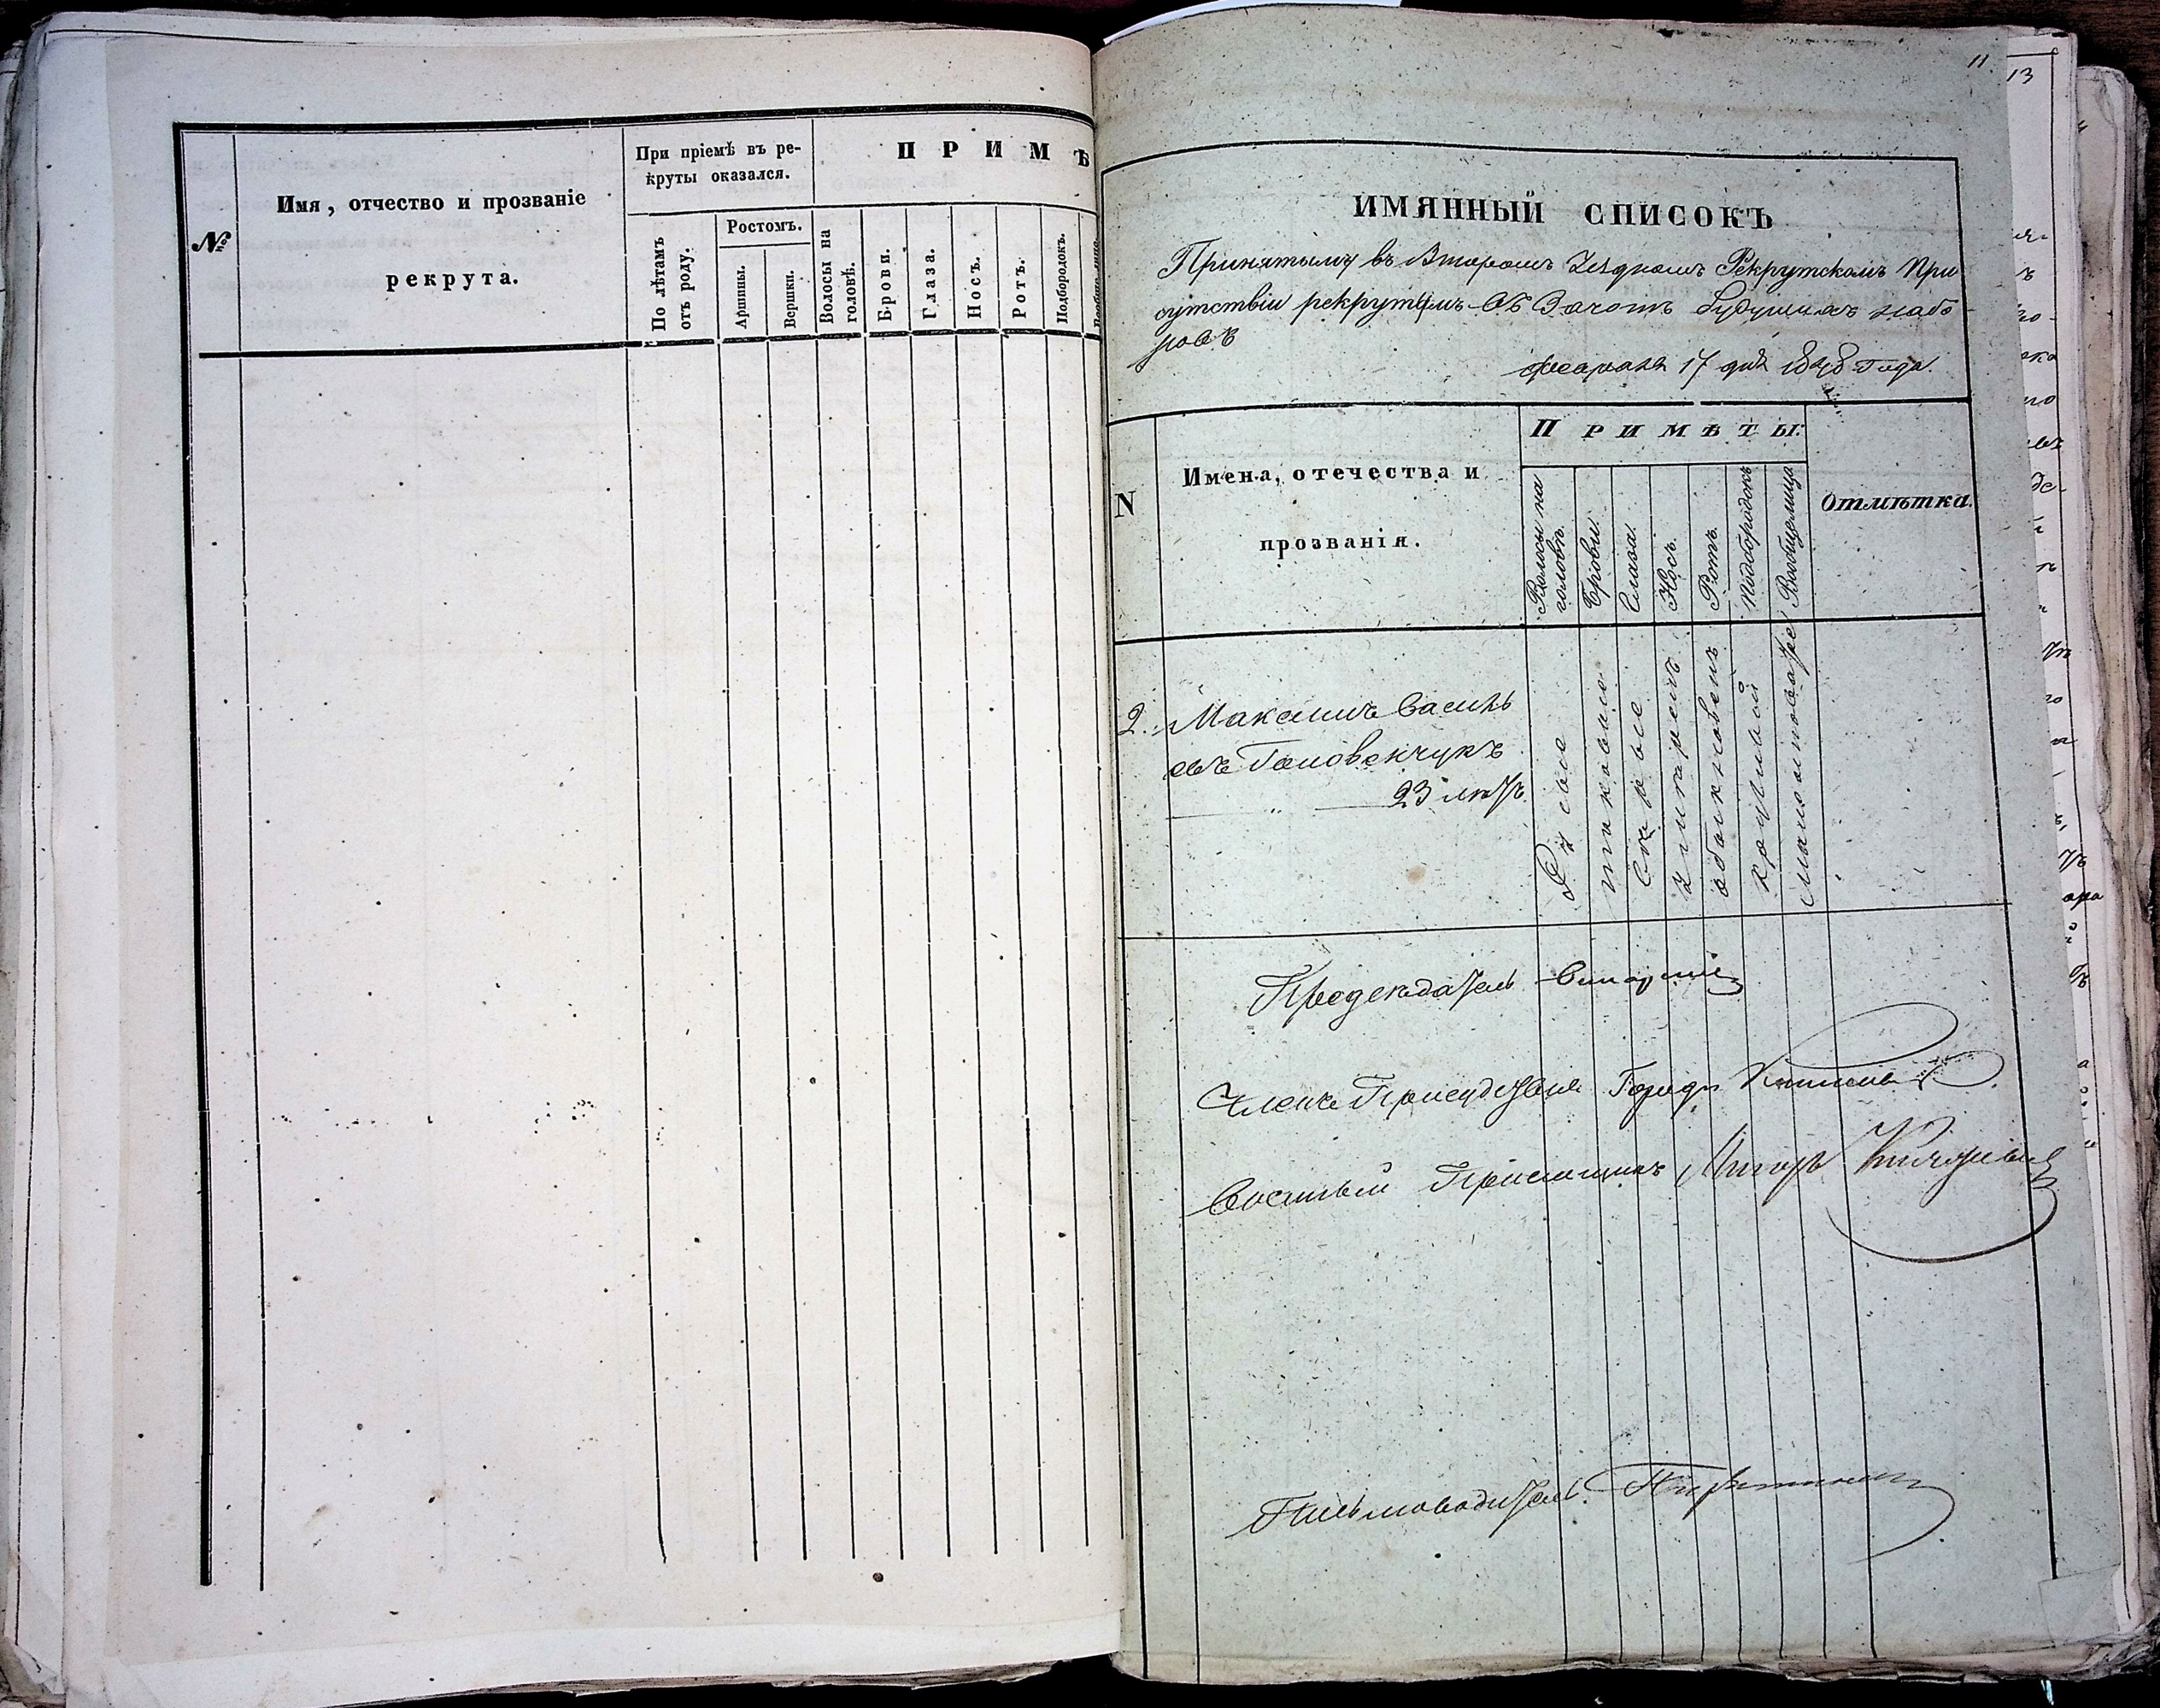 №
Имя, отчество и прозваніе
рекрута.
При пріемѣ въ ре-
круты оказался.
По лѣтамъ
отъ роду.
Ростомъ.
Аршины.
Вершки.
ПРИМѢ
Волосы на
головѣ.
Брови.
Глаза.
Носъ.
Ротъ.
Подбородокъ.
11.
13
ИМЯННЫЙ СПИСОКЪ
Принятыму въ Второмъ Уездномъ Рекрутскомъ При
сутствіи рекрутамъ въ Зачотъ будущихъ набо
ровъ
февраля 17 дня 1848 года.
N
Имена, отечества и
прозванія.
ПРИМѢТЫ:
Волосы на
головѣ.
Брови.
Глаза.
Носъ.
Ротъ.
Подбородокъ
Вообще лица
Отмѣтка.
2. Максимъ Василь
евъ
23 лѣтъ
Русые
таковыяже
Серые
умѣренъ
обыкновенъ
круглый
Предсѣдатель
Членъ Присудствія
Военный Пріемщикъ Маіоръ
Письмоводитель